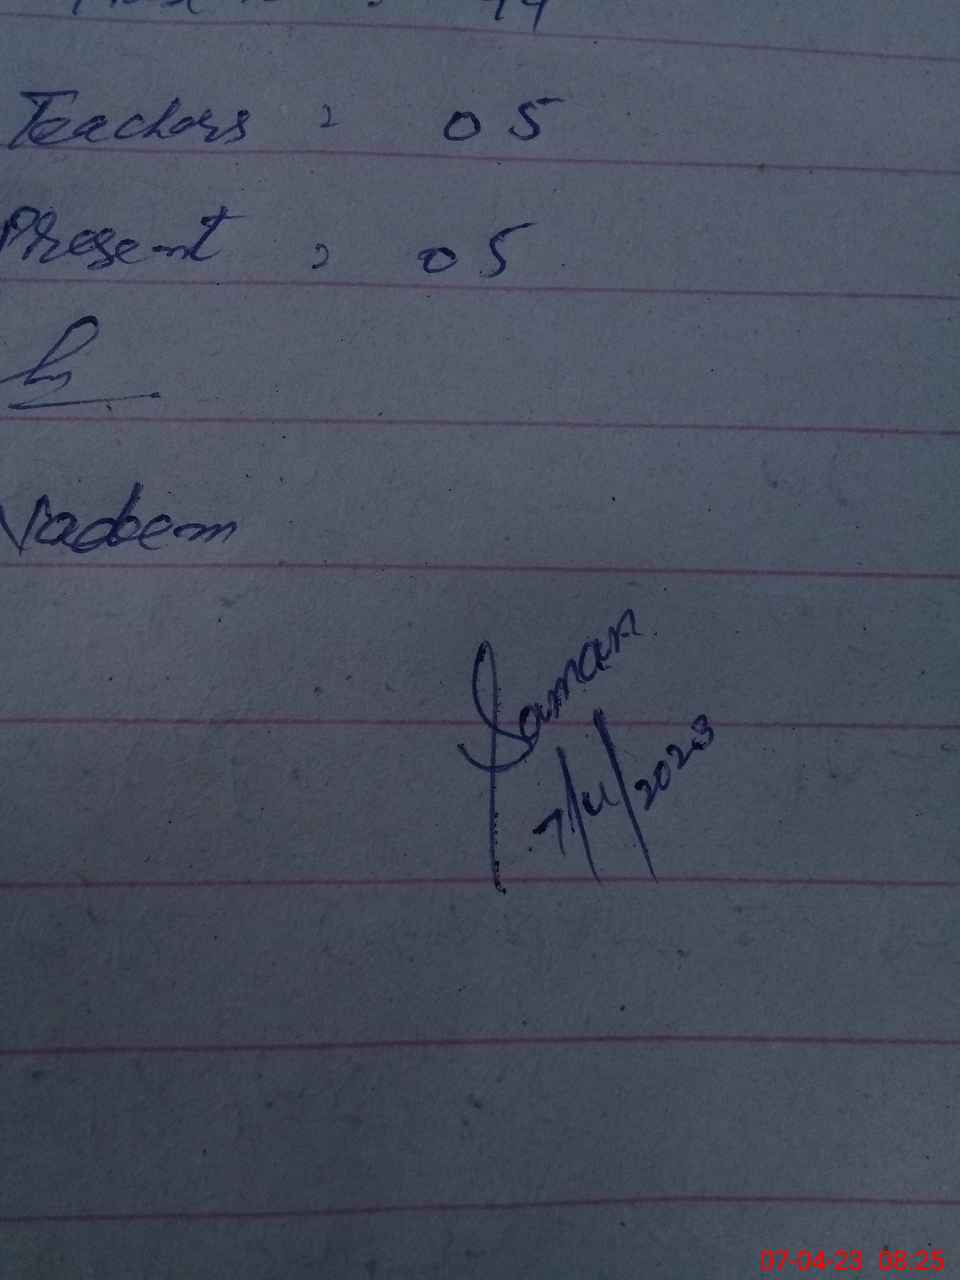 Teachers : 05
Present : 05
Nadeem
Saman
7/4/2023
07-04-23 08:25